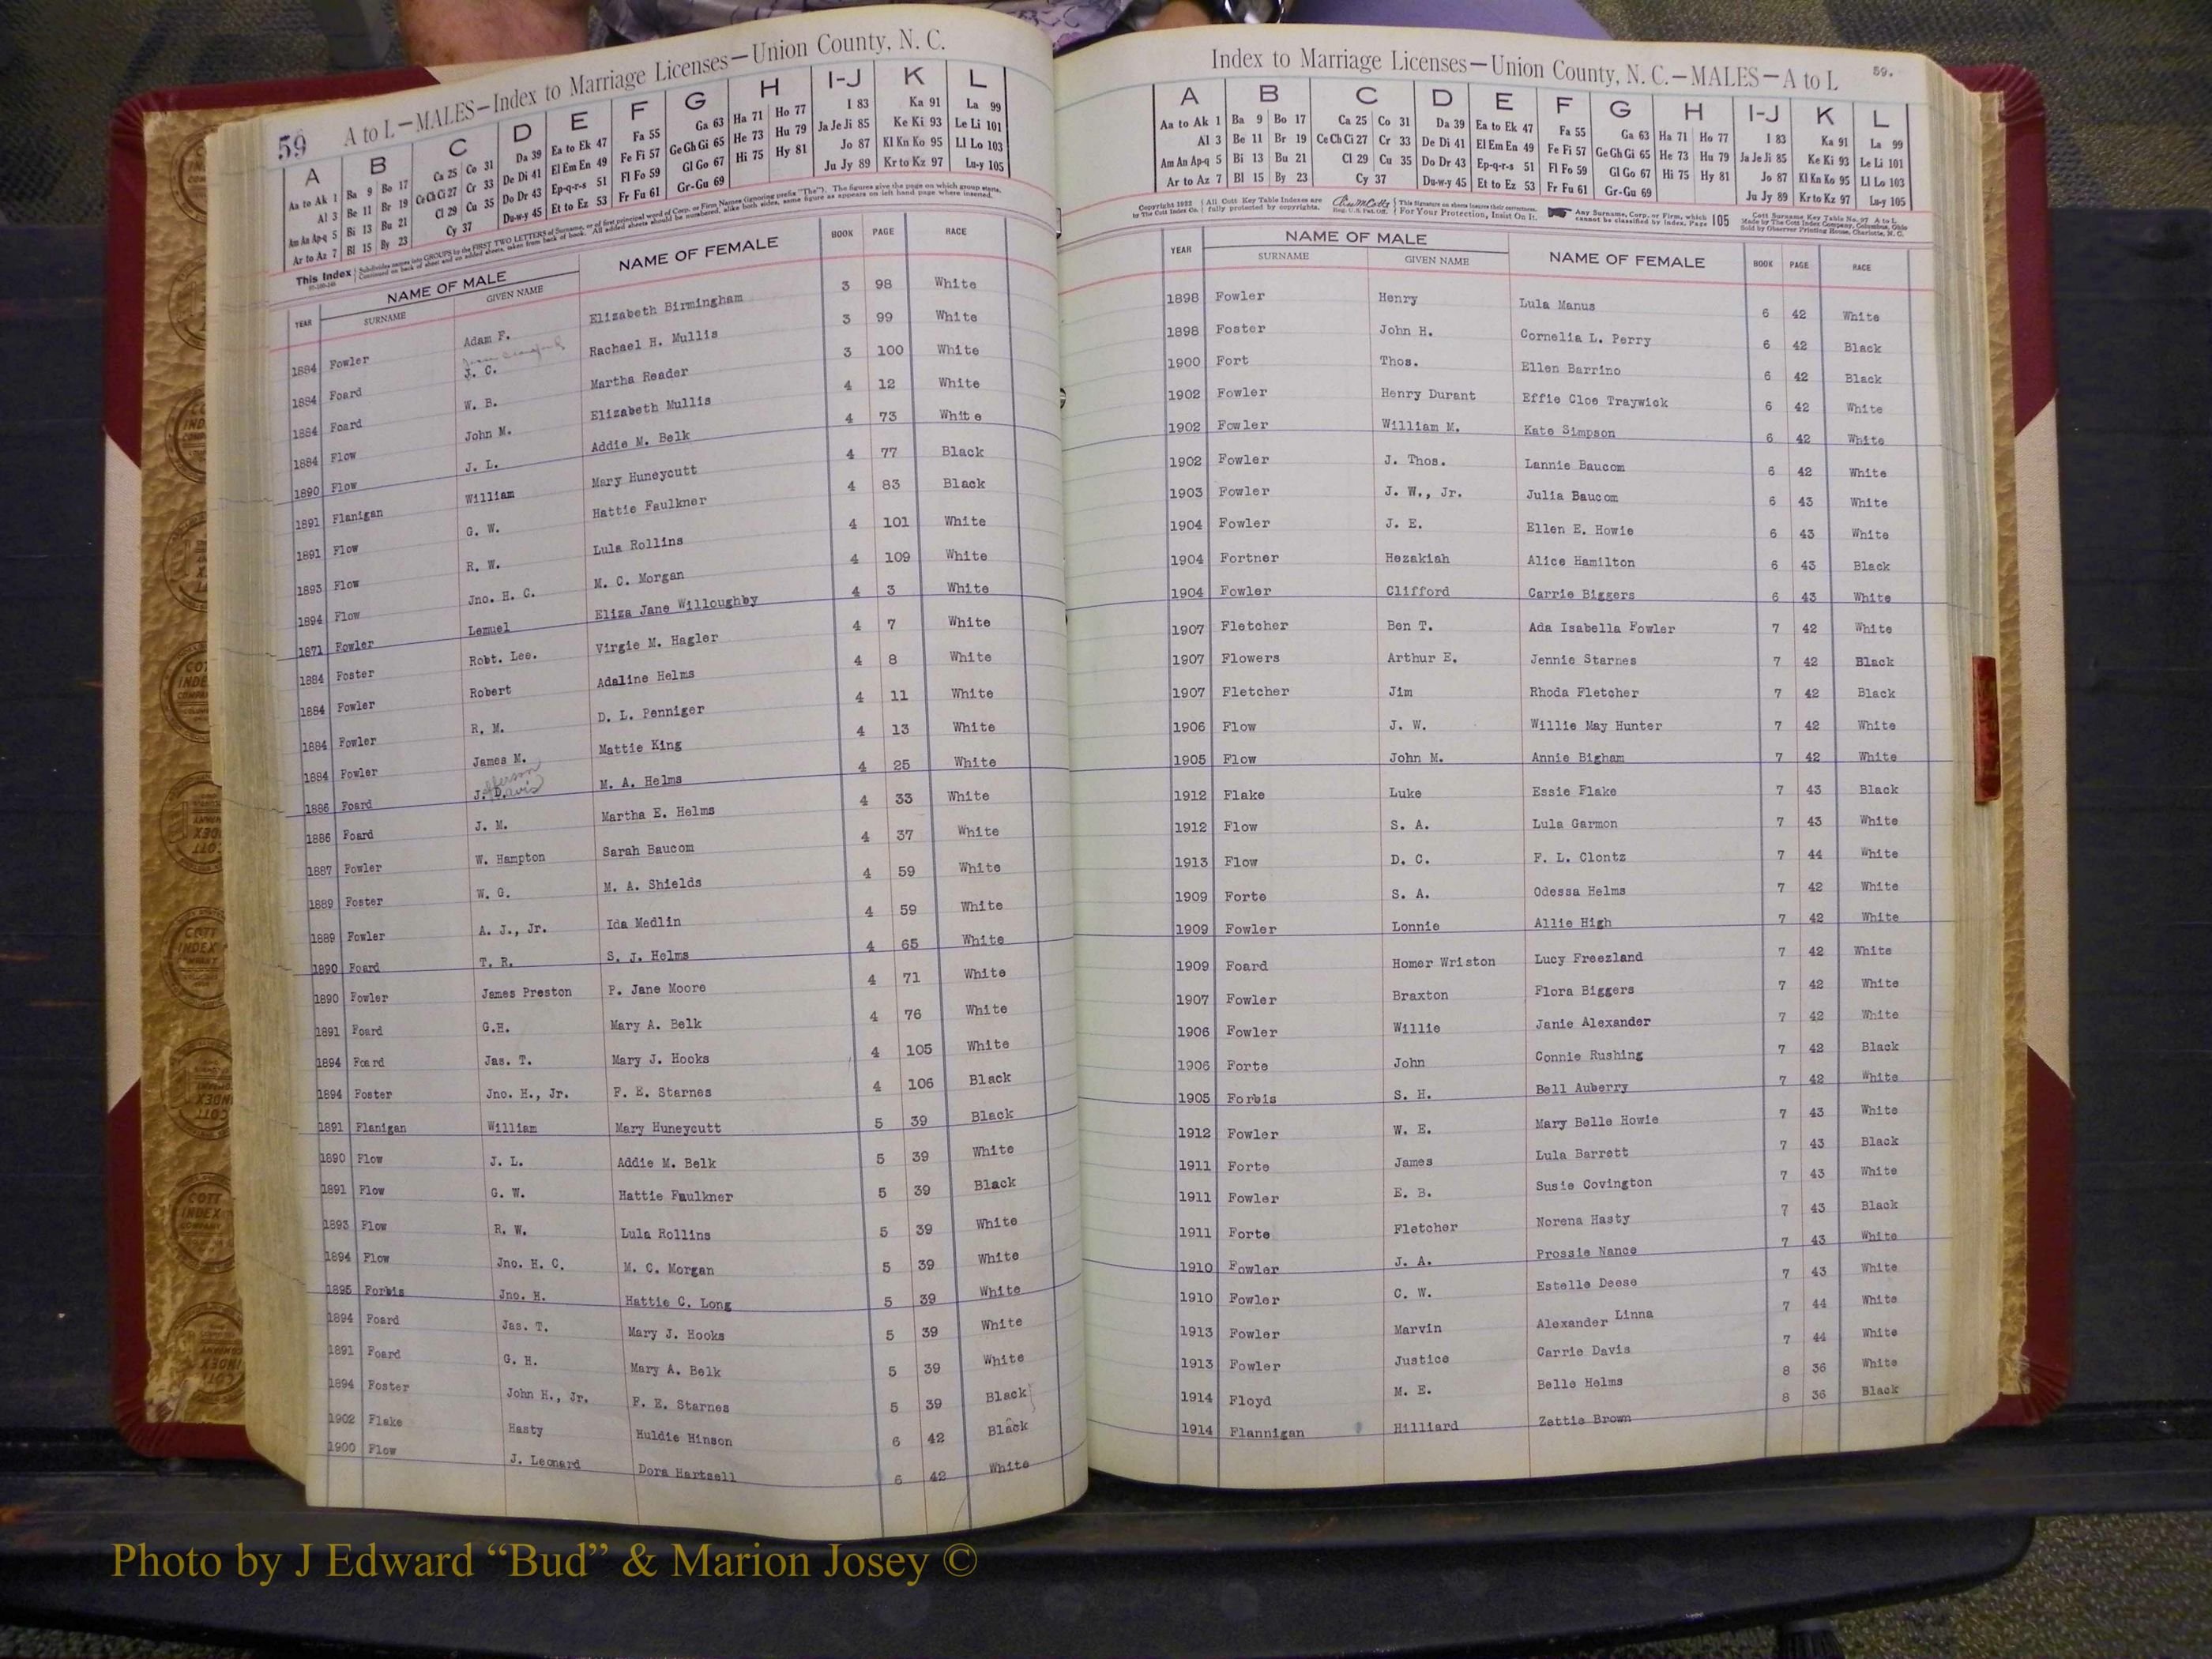 59 A to L—MALES—Index to Marriage Licenses—Union County, N. C.
A B C D E F G H I-J K L
Aa to Ak 1 Ba 9 Bo 17 Ca 25 Co 31 Da 39 Ea to Ek 47 Fa 55 Ga 63 Ha 71 Ho 77 I 83 Ka 91 La 99
Al 3 Be 11 Br 19 Ce Ch Ci 27 Cr 33 De Di 41 El Em En 49 Fe Fi 57 Ge Gh Gi 65 He 73 Hu 79 Ja Je Ji 85 Ke Ki 93 Le Li 101
Am An Ap-q 5 Bi 13 Bu 21 Cl 29 Cu 35 Do Dr 43 Ep-q-r-s 51 Fl Fo 59 Gl Go 67 Hi 75 Hy 81 Jo 87 Kl Kn Ko 95 Ll Lo 103
Ar to Az 7 Bl 15 By 23 Cy 37 Du-w-y 45 Et to Ez 53 Fr Fu 61 Gr-Gu 69 Ju Jy 89 Kr to Kz 97 Lu-y 105
This Index Subdivides names into GROUPS by the FIRST TWO LETTERS of Surname, or of first principal word of Corp. or Firm Names (ignoring prefix "The"). The figures give the page on which group starts.
Continued on back of sheet and on added sheets, taken from back of book. All added sheets should be numbered, alike both sides, same figure as appears on left hand page where inserted.
YEAR NAME OF MALE SURNAME GIVEN NAME NAME OF FEMALE BOOK PAGE RACE
1884 Fowler Adam F. Elizabeth Birmingham 3 98 White
1884 Foard J. C. Rachael H. Mullis 3 99 White
1884 Foard W. B. Martha Reader 3 100 White
1884 Flow John M. Elizabeth Mullis 4 12 White
1890 Flow J. L. Addie M. Belk 4 73 White
1891 Flanigan William Mary Huneycutt 4 77 Black
1891 Flow G. W. Hattie Faulkner 4 83 Black
1893 Flow R. W. Lula Rollins 4 101 White
1894 Flow Jno. H. C. M. C. Morgan 4 109 White
1871 Fowler Lemuel Eliza Jane Willoughby 4 3 White
1884 Foster Robt. Lee. Virgie M. Hagler 4 7 White
1884 Fowler Robert Adaline Helms 4 8 White
1884 Fowler R. M. D. L. Penniger 4 11 White
1884 Fowler James M. Mattie King 4 13 White
1886 Foard J. D. M. A. Helms 4 25 White
1886 Foard J. M. Martha E. Helms 4 33 White
1887 Fowler W. Hampton Sarah Baucom 4 37 White
1889 Foster W. G. M. A. Shields 4 59 White
1889 Fowler A. J., Jr. Ida Medlin 4 59 White
1890 Foard T. R. S. J. Helms 4 65 White
1890 Fowler James Preston P. Jane Moore 4 71 White
1891 Foard G.H. Mary A. Belk 4 76 White
1894 Foard Jas. T. Mary J. Hooks 4 105 White
1894 Foster Jno. H., Jr. F. E. Starnes 4 106 Black
1891 Flanigan William Mary Huneycutt 5 39 Black
1890 Flow J. L. Addie M. Belk 5 39 White
1891 Flow G. W. Hattie Faulkner 5 39 Black
1893 Flow R. W. Lula Rollins 5 39 White
1894 Flow Jno. H. C. M. C. Morgan 5 39 White
1895 Forbis Jno. H. Hattie C. Long 5 39 White
1894 Foard Jas. T. Mary J. Hooks 5 39 White
1891 Foard G. H. Mary A. Belk 5 39 White
1894 Foster John H., Jr. F. E. Starnes 5 39 Black
1902 Flake Hasty Huldie Hinson 6 42 Black
1900 Flow J. Leonard Dora Hartsell 6 42 White
Index to Marriage Licenses—Union County, N. C.—MALES—A to L 59.
A B C D E F G H I-J K L
Aa to Ak 1 Ba 9 Bo 17 Ca 25 Co 31 Da 39 Ea to Ek 47 Fa 55 Ga 63 Ha 71 Ho 77 I 83 Ka 91 La 99
Al 3 Be 11 Br 19 Ce Ch Ci 27 Cr 33 De Di 41 El Em En 49 Fe Fi 57 Ge Gh Gi 65 He 73 Hu 79 Ja Je Ji 85 Ke Ki 93 Le Li 101
Am An Ap-q 5 Bi 13 Bu 21 Cl 29 Cu 35 Do Dr 43 Ep-q-r-s 51 Fl Fo 59 Gl Go 67 Hi 75 Hy 81 Jo 87 Kl Kn Ko 95 Ll Lo 103
Ar to Az 7 Bl 15 By 23 Cy 37 Du-w-y 45 Et to Ez 53 Fr Fu 61 Gr-Gu 69 Ju Jy 89 Kr to Kz 97 Lu-y 105
Copyright 1922 by The Cott Index Co. All Cott Key Table Indexes are fully protected by copyrights. Reg. U.S. Pat. Off. This Signature on sheets insures their correctness. For Your Protection, Insist On It. Any Surname, Corp. or Firm, which cannot be classified by Index, Page 105 Cott Surname Key Table No. 97 A to L Made by The Cott Index Company, Columbus, Ohio Sold by Observer Printing House, Charlotte, N. C.
YEAR NAME OF MALE SURNAME GIVEN NAME NAME OF FEMALE BOOK PAGE RACE
1898 Fowler Henry Lula Manus 6 42 White
1898 Foster John H. Cornelia L. Perry 6 42 Black
1900 Fort Thos. Ellen Barrino 6 42 Black
1902 Fowler Henry Durant Effie Cloe Traywick 6 42 White
1902 Fowler William M. Kate Simpson 6 42 White
1902 Fowler J. Thos. Lannie Baucom 6 42 White
1903 Fowler J. W., Jr. Julia Baucom 6 43 White
1904 Fowler J. E. Ellen E. Howie 6 43 White
1904 Fortner Hezakiah Alice Hamilton 6 43 Black
1904 Fowler Clifford Carrie Biggers 6 43 White
1907 Fletcher Ben T. Ada Isabella Fowler 7 42 White
1907 Flowers Arthur E. Jennie Starnes 7 42 Black
1907 Fletcher Jim Rhoda Fletcher 7 42 Black
1906 Flow J. W. Willie May Hunter 7 42 White
1905 Flow John M. Annie Bigham 7 42 White
1912 Flake Luke Essie Flake 7 43 Black
1912 Flow S. A. Lula Garmon 7 43 White
1913 Flow D. C. F. L. Clontz 7 44 White
1909 Forte S. A. Odessa Helms 7 42 White
1909 Fowler Lonnie Allie High 7 42 White
1909 Foard Homer Wriston Lucy Freezland 7 42 White
1907 Fowler Braxton Flora Biggers 7 42 White
1906 Fowler Willie Janie Alexander 7 42 White
1906 Forte John Connie Rushing 7 42 Black
1905 Forbis S. H. Bell Auberry 7 42 White
1912 Fowler W. E. Mary Belle Howie 7 43 White
1911 Forte James Lula Barrett 7 43 Black
1911 Fowler E. B. Susie Covington 7 43 White
1911 Forte Fletcher Norena Hasty 7 43 Black
1910 Fowler J. A. Prossie Nance 7 43 White
1910 Fowler C. W. Estelle Deese 7 43 White
1913 Fowler Marvin Alexander Linna 7 44 White
1913 Fowler Justice Carrie Davis 7 44 White
1914 Floyd M. E. Belle Helms 8 36 White
1914 Flannigan Hilliard Zettie Brown 8 36 Black
Photo by J Edward “Bud” & Marion Josey ©